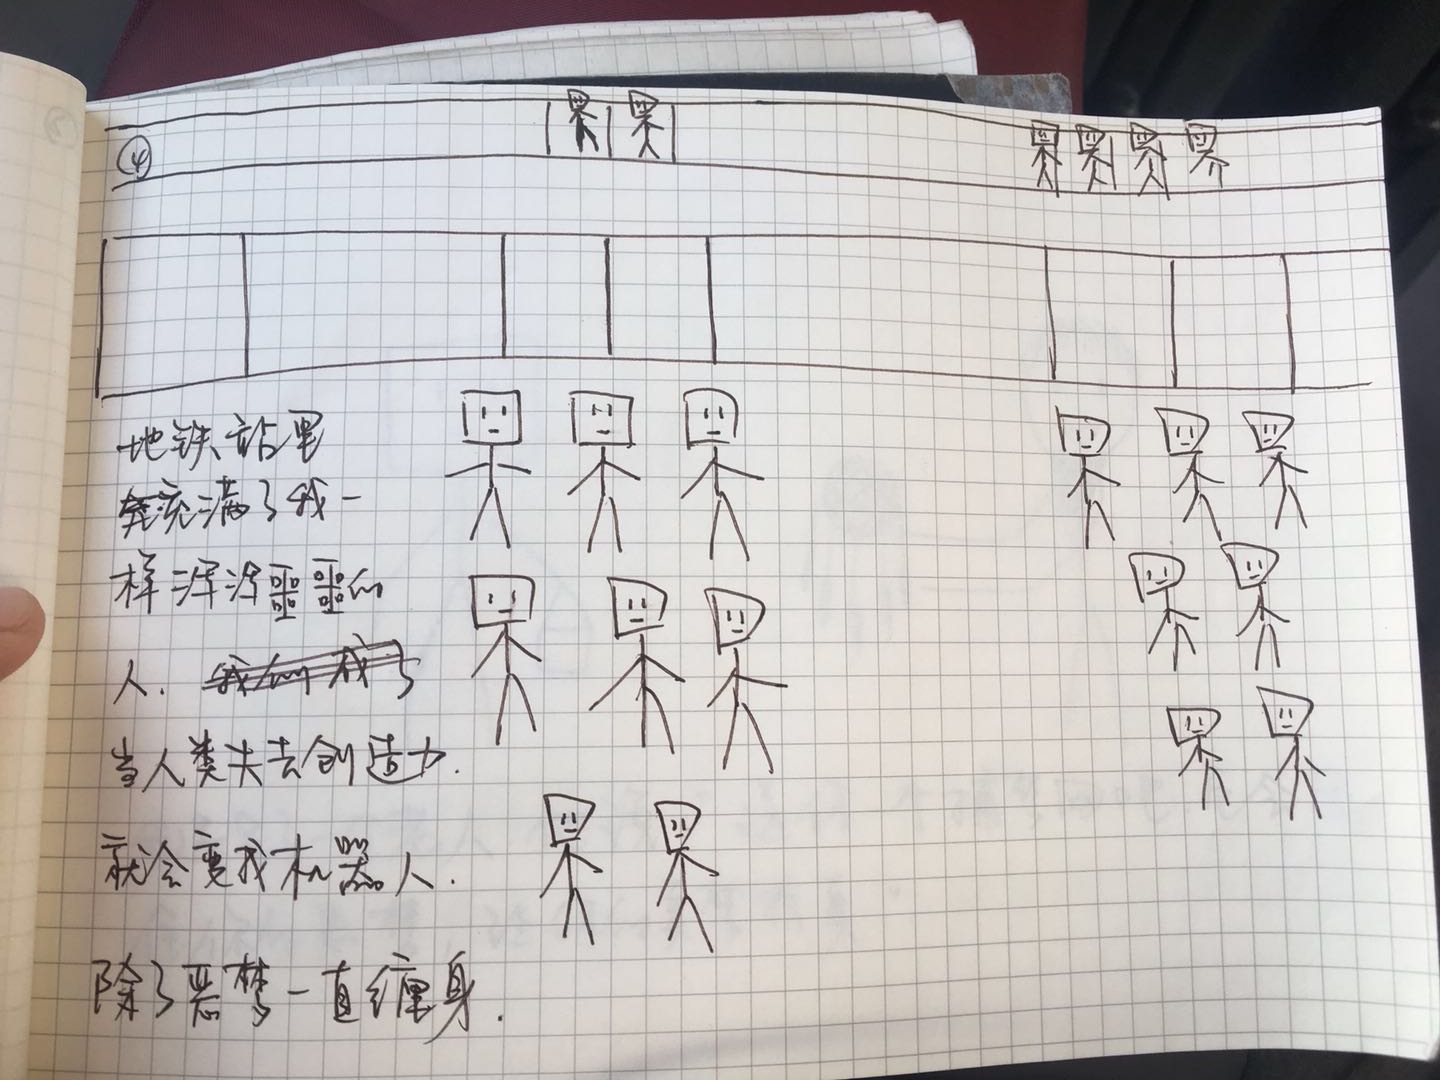 ④
地铁站里
充满了我一
样浑浑噩噩的
人. 我们成了
当人类失去创造力.
就会变成机器人.
除了恶梦一直缠身.